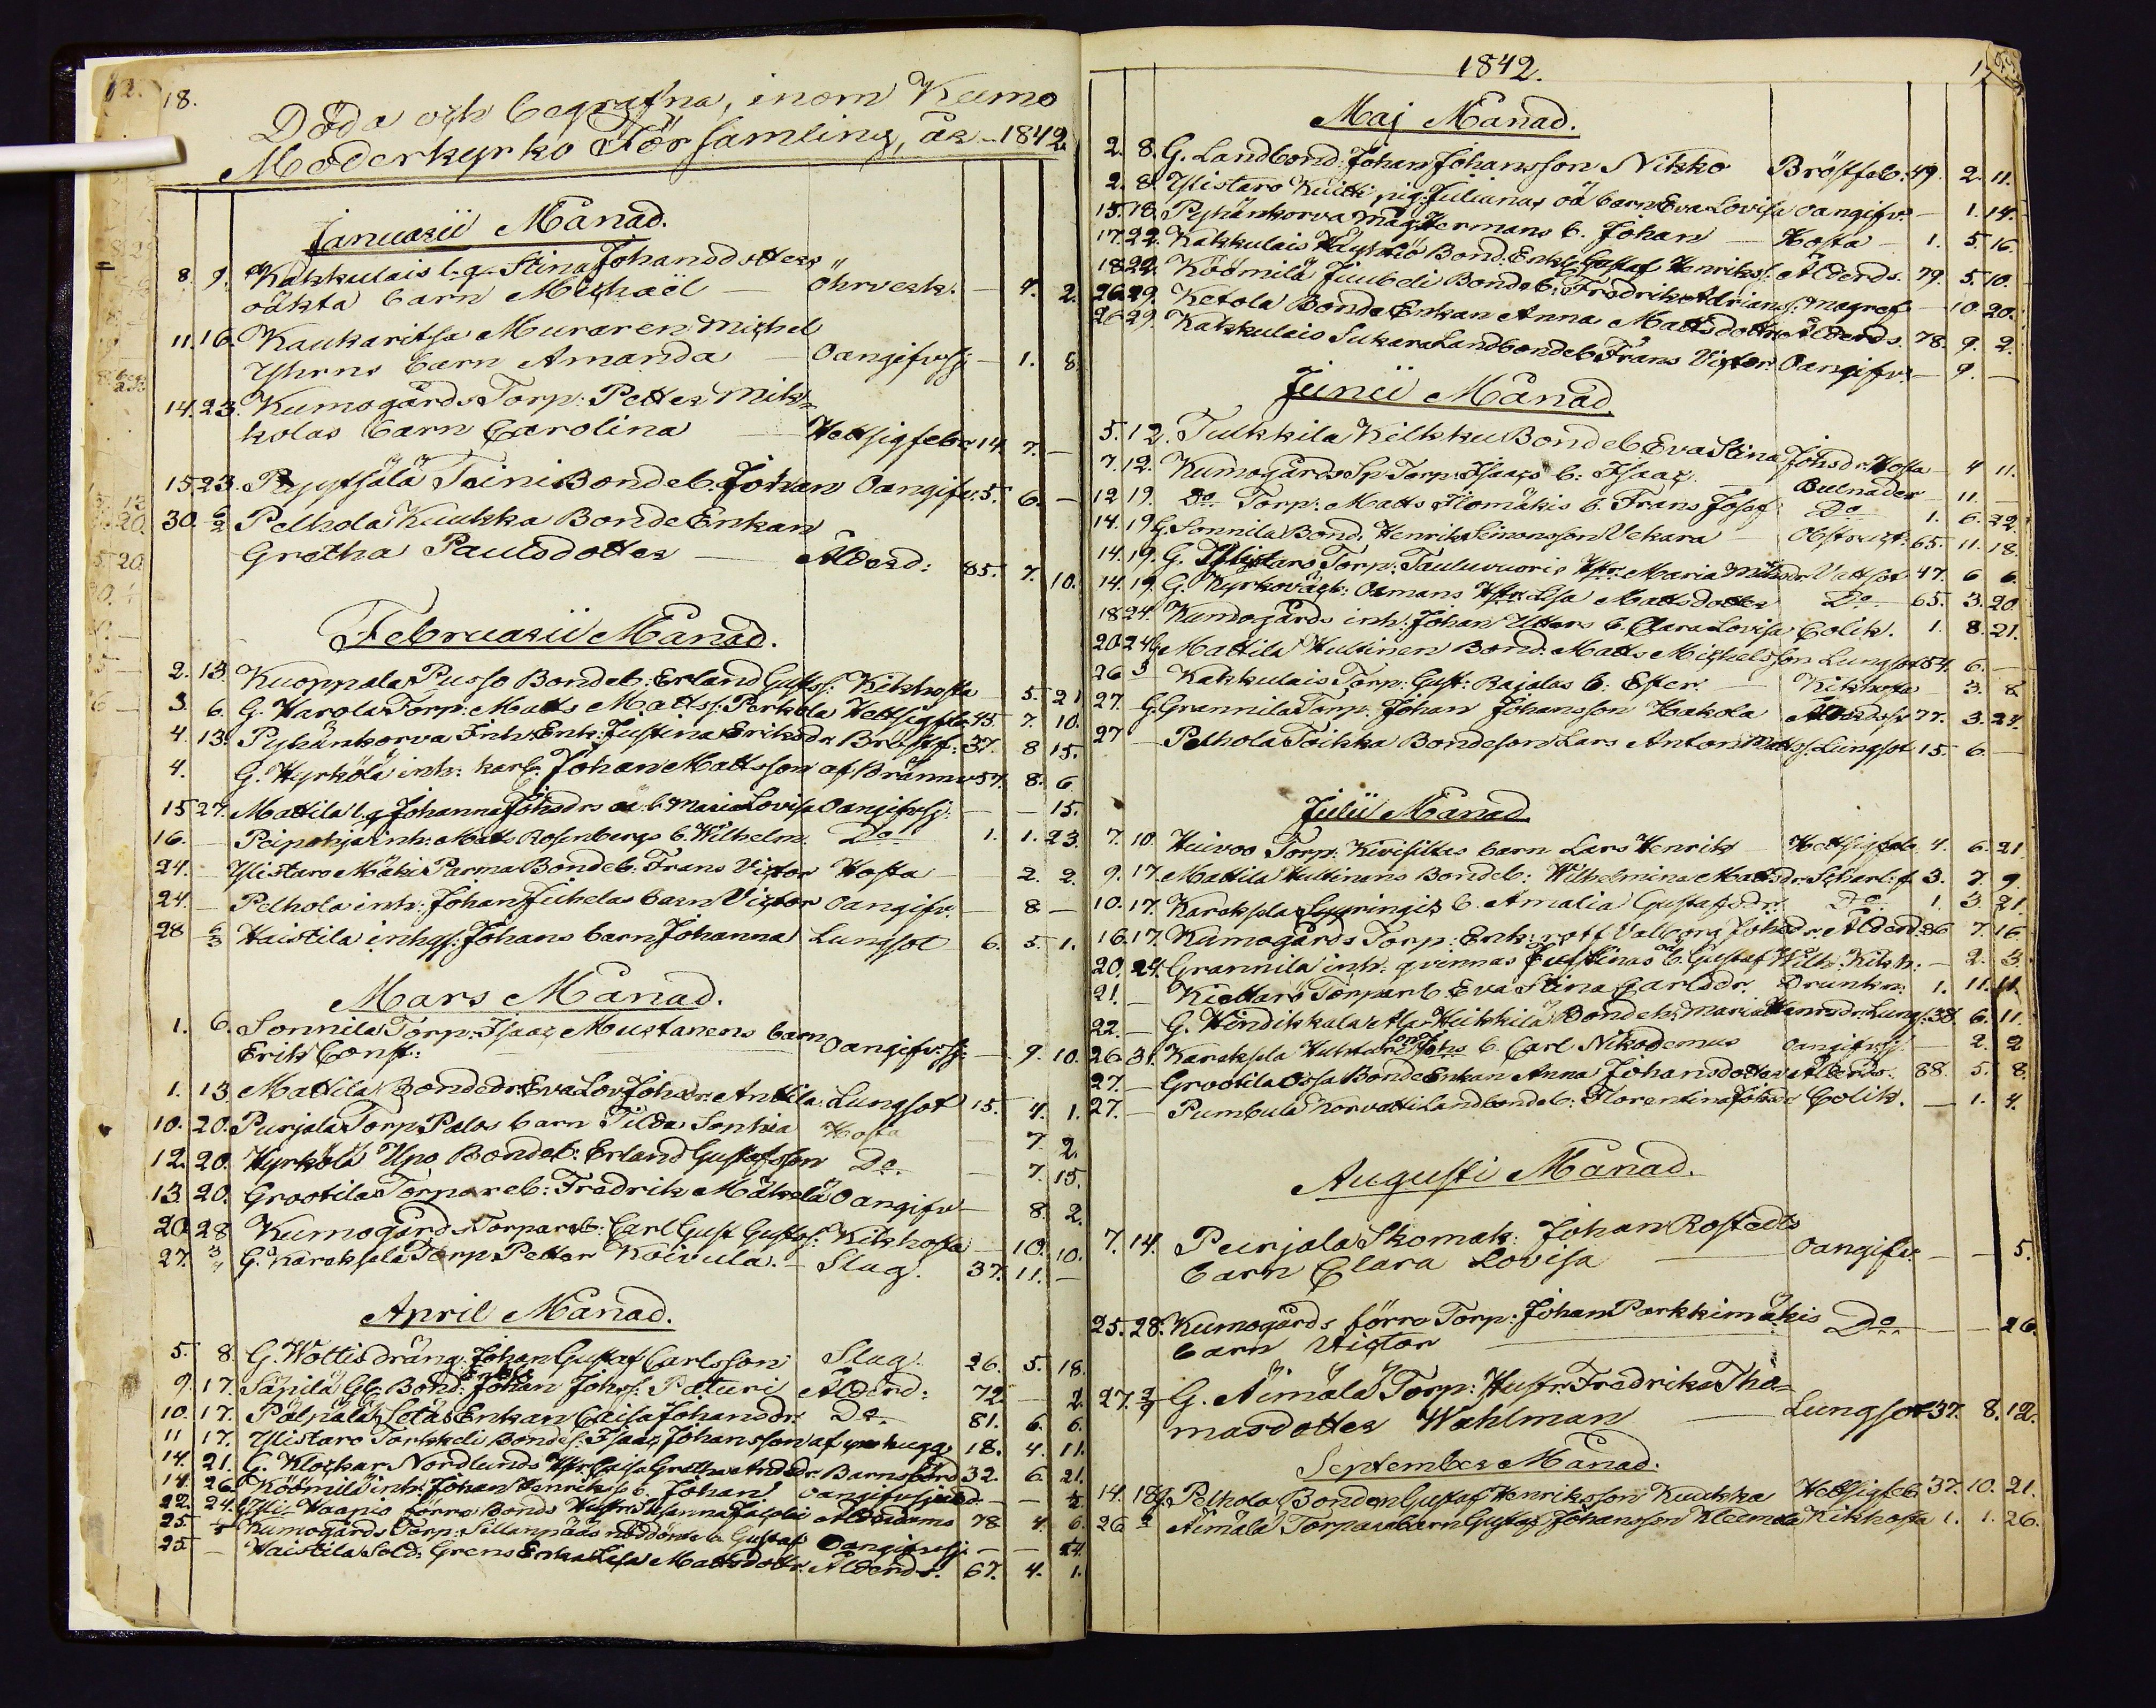 18.
Döda och begrafna, inom Kumo
Moderkyrko Församling, år 1842.
Januarii Månad.
8. 9. Kakkulais l. q. Stina Johansdotters
oäkta barn Michaël — Öhrverk. — 4. 2.
11. 16. Kaukaritsa Muraren Michel
Yhrns barn Amanda Oangifv: sj: — 1. 8.
14. 23. Kumogårds Torp: Petter Mik-
kolas barn Carolina — Hettsigfeber 14. 7. —
15. 23. Ryytsälä Teini Bonde b. Johan Oangifv. 5. 6. —
30. 6/2 Pelhola Kuukka Bonde Enkan
Gretha Paulsdotter — Ålderd: 85. 7. 10.
Februarii Månad.
2. 13. Kuoppala Pusso Bonde b: Erland Gustfs: Kikhosta 5. 21
3. 6. G. Harola Torp: Matts Mattss: Perkola Hettsigfeb. 45. 7. 10.
4. 13. Pyhänkorva Inh. Enk: Justina Eriksdr Bröstf. 37. 8 15.
4. G. Hyrkölä inh: karl. Johan Mattsson af Brännv 57. 8. 6
15 27. Mattila l. q. Johanna Johsdrs oä. b. Maria Lovisa Oangifv sj: — — 15.
16. — Peipohja inh: Matts Rosenbergs b. Wilhelm. Do 1. 1. 23.
24. — Ylistaro Mäki Parma Bonde b: Frans Victor Hosta 2. 2.
24. — Pelhola inh: Johan Juhelas barn Victor Oangifv. — 8 —
28 6/3 Haistila inhys: Johans barn Johanna Lungsot 6. 5. 1.
Mars Månad.
1. 6. Sonnila Torp: Isaac Mustanens barn
Erik Const: Oangifv: sj: — 9. 10.
1. 13. Mattila Bonde dr: Eva Lov. Johsdr: Anttila. Lungsot 15. 4. 1.
10. 20. Purjala Torp: Palos barn Tilda Sophia Hosta — 7 2.
12. 20. Hyrkölä Upo Bonde b: Erland Gustafsson Do. — 7. 15.
13. 20. Grootila Torpare b: Fredrik Mäkelä Oangifv — 8. 2.
20 28 Kumogårds Torpare b: Carl Gust Gustfs: Kikhosta — 10. 10.
27. 3/4 G. Karaksela Torp. Petter Koivula. — Slag. 37. 11. —
April Månad.
5. 8 G. Wottis dräng: Johan Gustaf Carlsson Slag. 26. 5. 18.
Enkl:
9. 17. Säpilä Gl: Bond: Johan Johss: Paturi Ålderd: 72. — 2.
10. 17. Pälpälä Setäs Enkan Caisa Johansdr. Do. 81. 6. 6.
11 17. Ylistaro Torkkeli Bondes: Isaac Johansson af yxehugg. 18. 4. 11.
14. 21. G. Klockar Nordlunds Hstr: Caisa Gretha Andsdr. Barnsbörd 32. 6. 21.
14. 26. Köömilä inh: Johan Henrikss. b. Johan Oangifv sjukd. — — 1/2
22. 24. Yli- Haapio förra Bonds Hustru Susanna Jacobi Ålderdoms 78 4. 6.
25. 1/5 Kumogårds Torp: Sillanpääs nöddöpte b. Gustaf Oangifv sj: — — 24.
25 — Haistila Sold: Grens Enka Lisa Mattsdotr. Ålderds. 67. 4. 1.
1842.
Maj Månad.
2. 8. G. Landbond: Johan Johansson Nikko Bröstfeb: 49. 2. 11.
2. 8. Ylistaro Kuitti pig: Julianas oä barn Eva Lovisa Oangifv. — 1. 14.
15. 18. Pyhänkorva Mäg: Hermans b. Johan — Hosta — 1. 5. 16
17. 22. Kakkulais Bond. Enkl. Gustaf Henrikss: Ålderds. 79. 5. 10.
18. 22. Köömilä Juubeli Bonde b: Fredrik Adrians: Magref — 10. 20.
26. 29. Ketola Bonde Enkan Anna Mattsdotter Ålderds. 78. 9. 2.
26 29. Kakkulais Sukara Landbonde b. Frans Victor. Oangifv. — 9. —
Junii Månad.
5. 12. Tulkkila Kilkku Bonde b. Eva Stina Johsdr: Hosta — 4 11.
7. 12. Kumogårds Sp: Torp: Isaacs b: Isaac. — Bulnader — 11. —
12 19. Do Torp: Matts Ilomäkis b. Frans Josef Do 1. 6. 22.
14. 19 G. Sonnila Bond: Henrik Simonsson Vekara — Obstruct: 65. 11. 18.
14. 19. G. Ylistaro Torp: Tauluvuoris Hstr: Maria Mattsdr Vattsot 47. 6 6.
14. 19. G. Kyrkoväct: Oxmans Hstr: Lisa Mattsdotter Do 65. 3. 20.
18. 24. Kumogårds inh: Johan Utters b. Clara Lovisa Colik. 1. 8. 21.
20. 24 G. Mattila Hultinen Bond: Matts Michelsson Lungsot 54. 6. —
26 3 Kakkulais Torp: Gust: Rajalas b: Ester. — Kikhosta — 3. 8
27. G. Grannila Torp: Johan Johansson Hakola Ålderdsv 77. 3. 24.
27 — Pelhola Toikka Bondeson Lars Anton Mattss. Lungsot 15. 6. —
Julii Månad.
7. 10. Huivoo Torp: Kivisiltas barn Lars Henrik — Hettsigfeb 4. 6. 21
9. 17. Mattila Hultinens Bonde b: Wilhelmina Mattsdr: Scharl: f. 3. 7. 9.
10. 17. Karaksela b. Amalia Gustafsdr. Do. 1. 3. 21.
16. 17. Kumogårds Torp: Enk: Valborg Johsdr: Ålderd: 86 7. 16
20. 24. Grannila inh: qvinnas Justinas oä b. Gustaf Wilh: Kikh: — 2. 3.
21. — Kiettarö Torpare b. Eva Stina Carlsdr. Drunkn: 1. 11. 11.
22. — G. Hindikkala Ala-Heikkilä Bonde h: Maria Henrsdr: Lung: 38. 6. 11.
26. 31. Karaksela Huhtari Johs b. Carl Nikodemus oangifv sj — 2. 2
27. — Grootila Ossa Bonde Enkan Anna Johansdotter Ålderds. 88. 5. 8.
27. — Pumbula Korvatti Landbonde b: Florentina Johsdr Colik. — 1. 4.
Augusti Månad.
7. 14. Purjala Skomak: Johan Rostedts
barn Clara Lovisa — Oangifv: — — 5.
25. 28. Kumogårds förra Torp: Johan Parkkimäkis
barn Victor — Do — — 26.
27. G. Äimälä Torp: Hustr: Fredrika Tho-
masdotter Wahlman — Lungsot 37. 8. 12.
September Månad.
14. 18. G. Pelhola Bonden Gustaf Henriksson Kuukka Hettsigfeb. 37. 10. 21.
26 Äimälä Torpare barn Gustaf Johansson Kleemola Kikhosta 1. 1. 26.